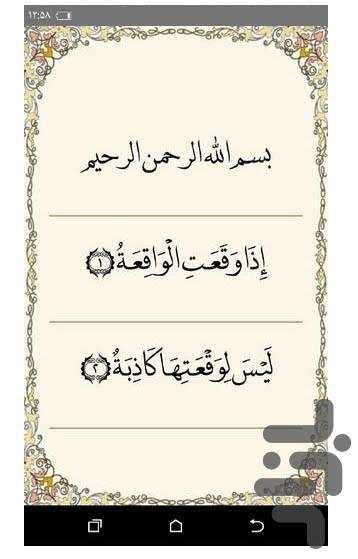 ۱۲:۵۸
بسم الله الرحمن الرحیم
إِذَا وَقَعَتِ الْوَاقِعَةُ ﴿۱﴾
لَيْسَ لِوَقْعَتِهَا كَاذِبَةٌ ﴿۲﴾